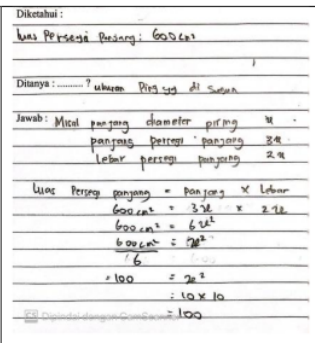 Diketahui :
luas Persegi Panjang : 600 cm²
Ditanya : .......... ? ukuran Piring yg di
Jawab : Misal panjang diameter piring x
panjang persegi panjang 3x
Lebar persegi panjang 2x
Luas Persegi panjang = panjang x Lebar
600 cm² = 3x x 2x
600 cm² = 6x²
600 cm² = x²
6
= 100 = x²
= 10 x 10
= 100
CS Dipindai dengan CamScanner